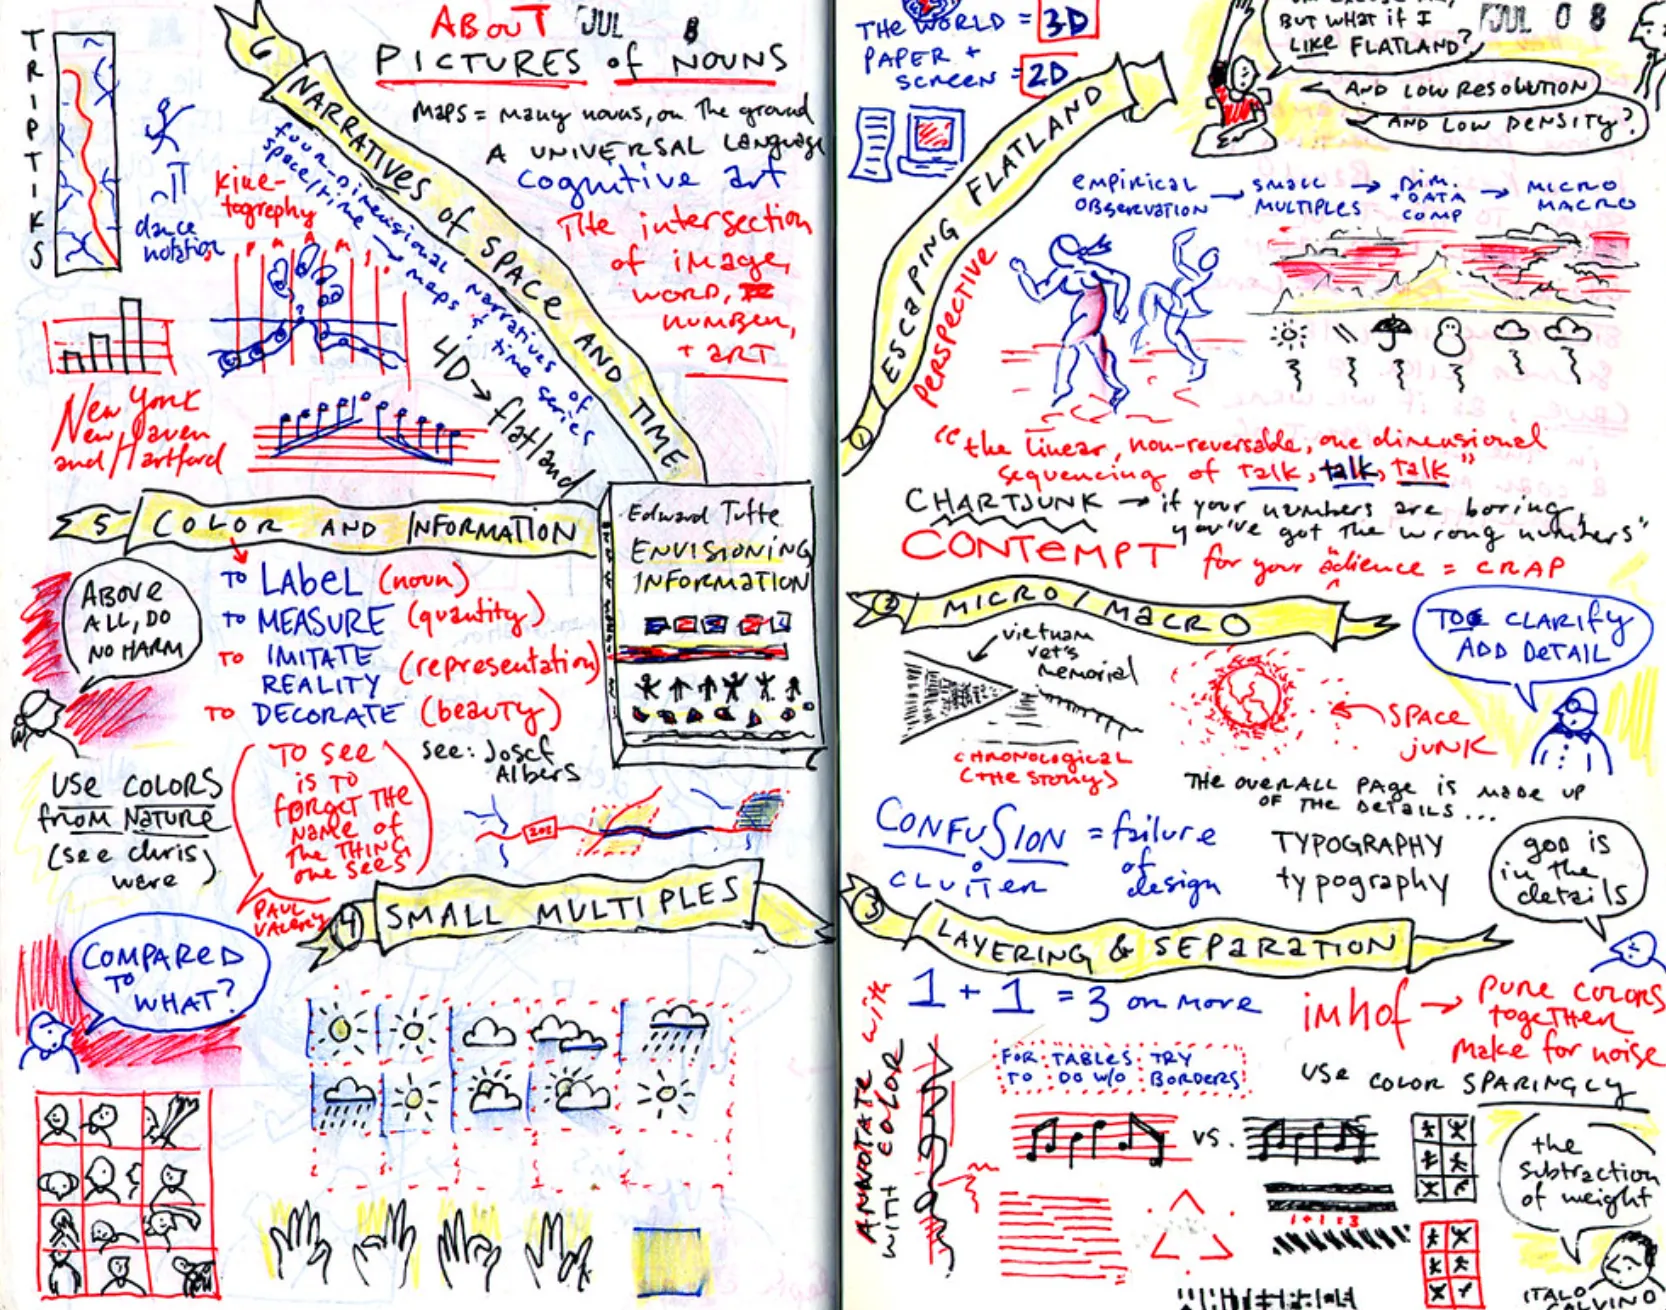 ABOUT
JUL 8
PICTURES of NOUNS
TRIPTIKS
6 NARRATIVES of SPACE AND TIME
maps = many nouns, on the ground
A UNIVERSAL Language
cognitive art
The intersection
of image,
WORD,
NUMBER,
+ ART
four-dimensional
space/time → maps + narratives of
time series
4D → flatland
kine-
tography
dance
notation
New York
New Haven
and Hartford
5 COLOR AND INFORMATION
TO LABEL (noun)
TO MEASURE (quantity)
TO IMITATE
REALITY (representation)
TO DECORATE (beauty)
ABOVE
ALL, DO
NO HARM
see: Josef
Albers
Edward Tufte
ENVISIONING
INFORMATION
USE COLORS
from NATURE
(see chris)
ware
TO SEE
is TO
FORGET THE
NAME of
THE THING
one sees
PAUL
VALERY
202
4 SMALL MULTIPLES
COMPARED
TO
WHAT?
THE WORLD = 3D
PAPER +
SCREEN = 2D
BUT WHAT if I
LIKE FLATLAND?
JUL 08
AND LOW RESOLUTION
AND LOW DENSITY?
1 ESCAPING FLATLAND
perspective
EMPIRICAL
OBSERVATION → SMALL
MULTIPLES → DIM.
+ DATA
COMP → MICRO
MACRO
"the linear, non-reversable, one dimensional
sequencing of talk, talk, talk"
CHARTJUNK → if your numbers are boring,
you've got the wrong numbers"
CONTEMPT for your audience = CRAP
2 MICRO/MACRO
vietnam
vet's
memorial
CHRONOLOGICAL
(THE STORY)
SPACE
JUNK
TO CLARIFY
ADD DETAIL
THE OVERALL PAGE is MADE UP
OF THE DETAILS...
CONFUSION = failure
of
design
CLUTTER
TYPOGRAPHY
typography
god is
in the
details
3 LAYERING & SEPARATION
1 + 1 = 3 or more
imhof → pure colors
together
make for noise
ANNOTATE with
WITH COLOR
FOR TABLES TRY
TO DO W/O BORDERS
USE COLOR SPARINGLY
VS.
1+1=3
the
subtraction
of weight
ITALO
CALVINO